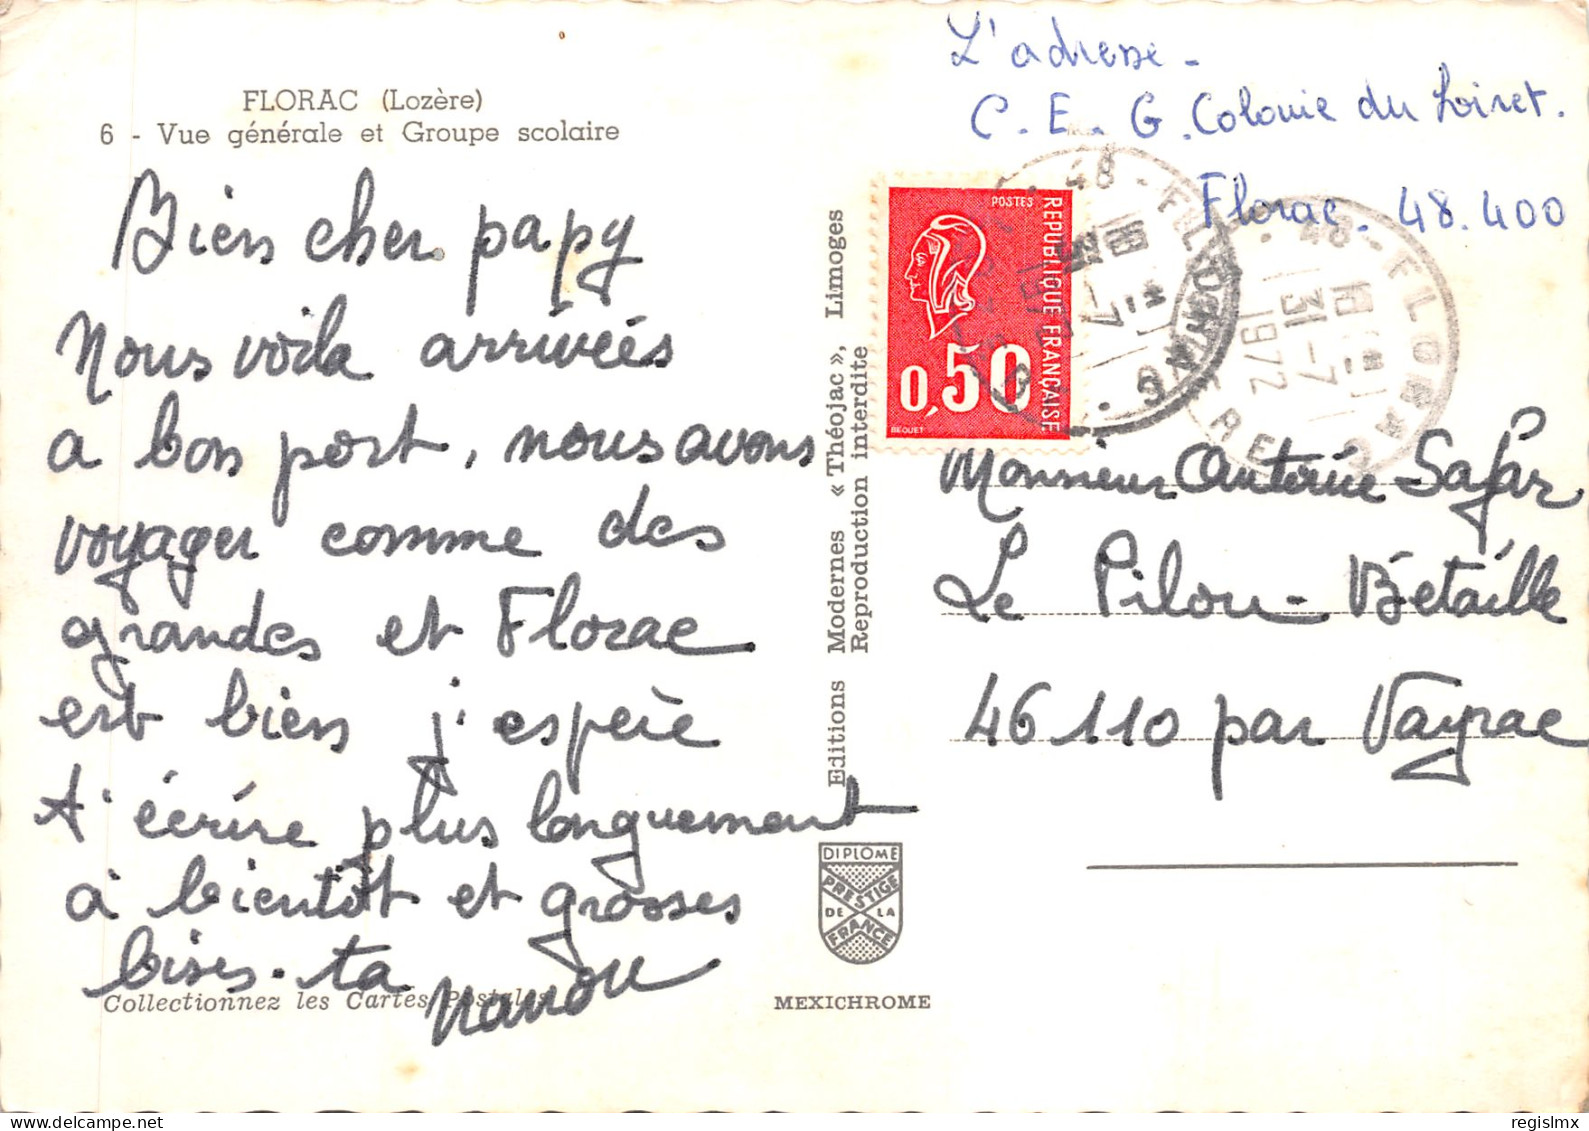 FLORAC (Lozère)
6 - Vue générale et Groupe scolaire
Bien cher papy
Nous voila arrivées
a bon port, nous avons
voyager comme des
grandes et Florac
est bien j'espère
t'écrire plus longuement
à bientôt et grosses
bises. ta
Nanou
Collectionnez les Cartes Postales
Editions Modernes « Théojac », Limoges
Reproduction interdite
DIPLOME
PRESTIGE
DE LA
FRANCE
MEXICHROME
L'adresse -
C. E. G. Colonie du Loiret.
Florac. 48.400
POSTES
REPUBLIQUE FRANÇAISE
0,50
BEQUET
48 - FLORAC
48 - FLORAC
18H
31-7
1972
Monsieur Antoine Safar
Le Pilou - Bétaille
46110 par Vayrac
regislmx